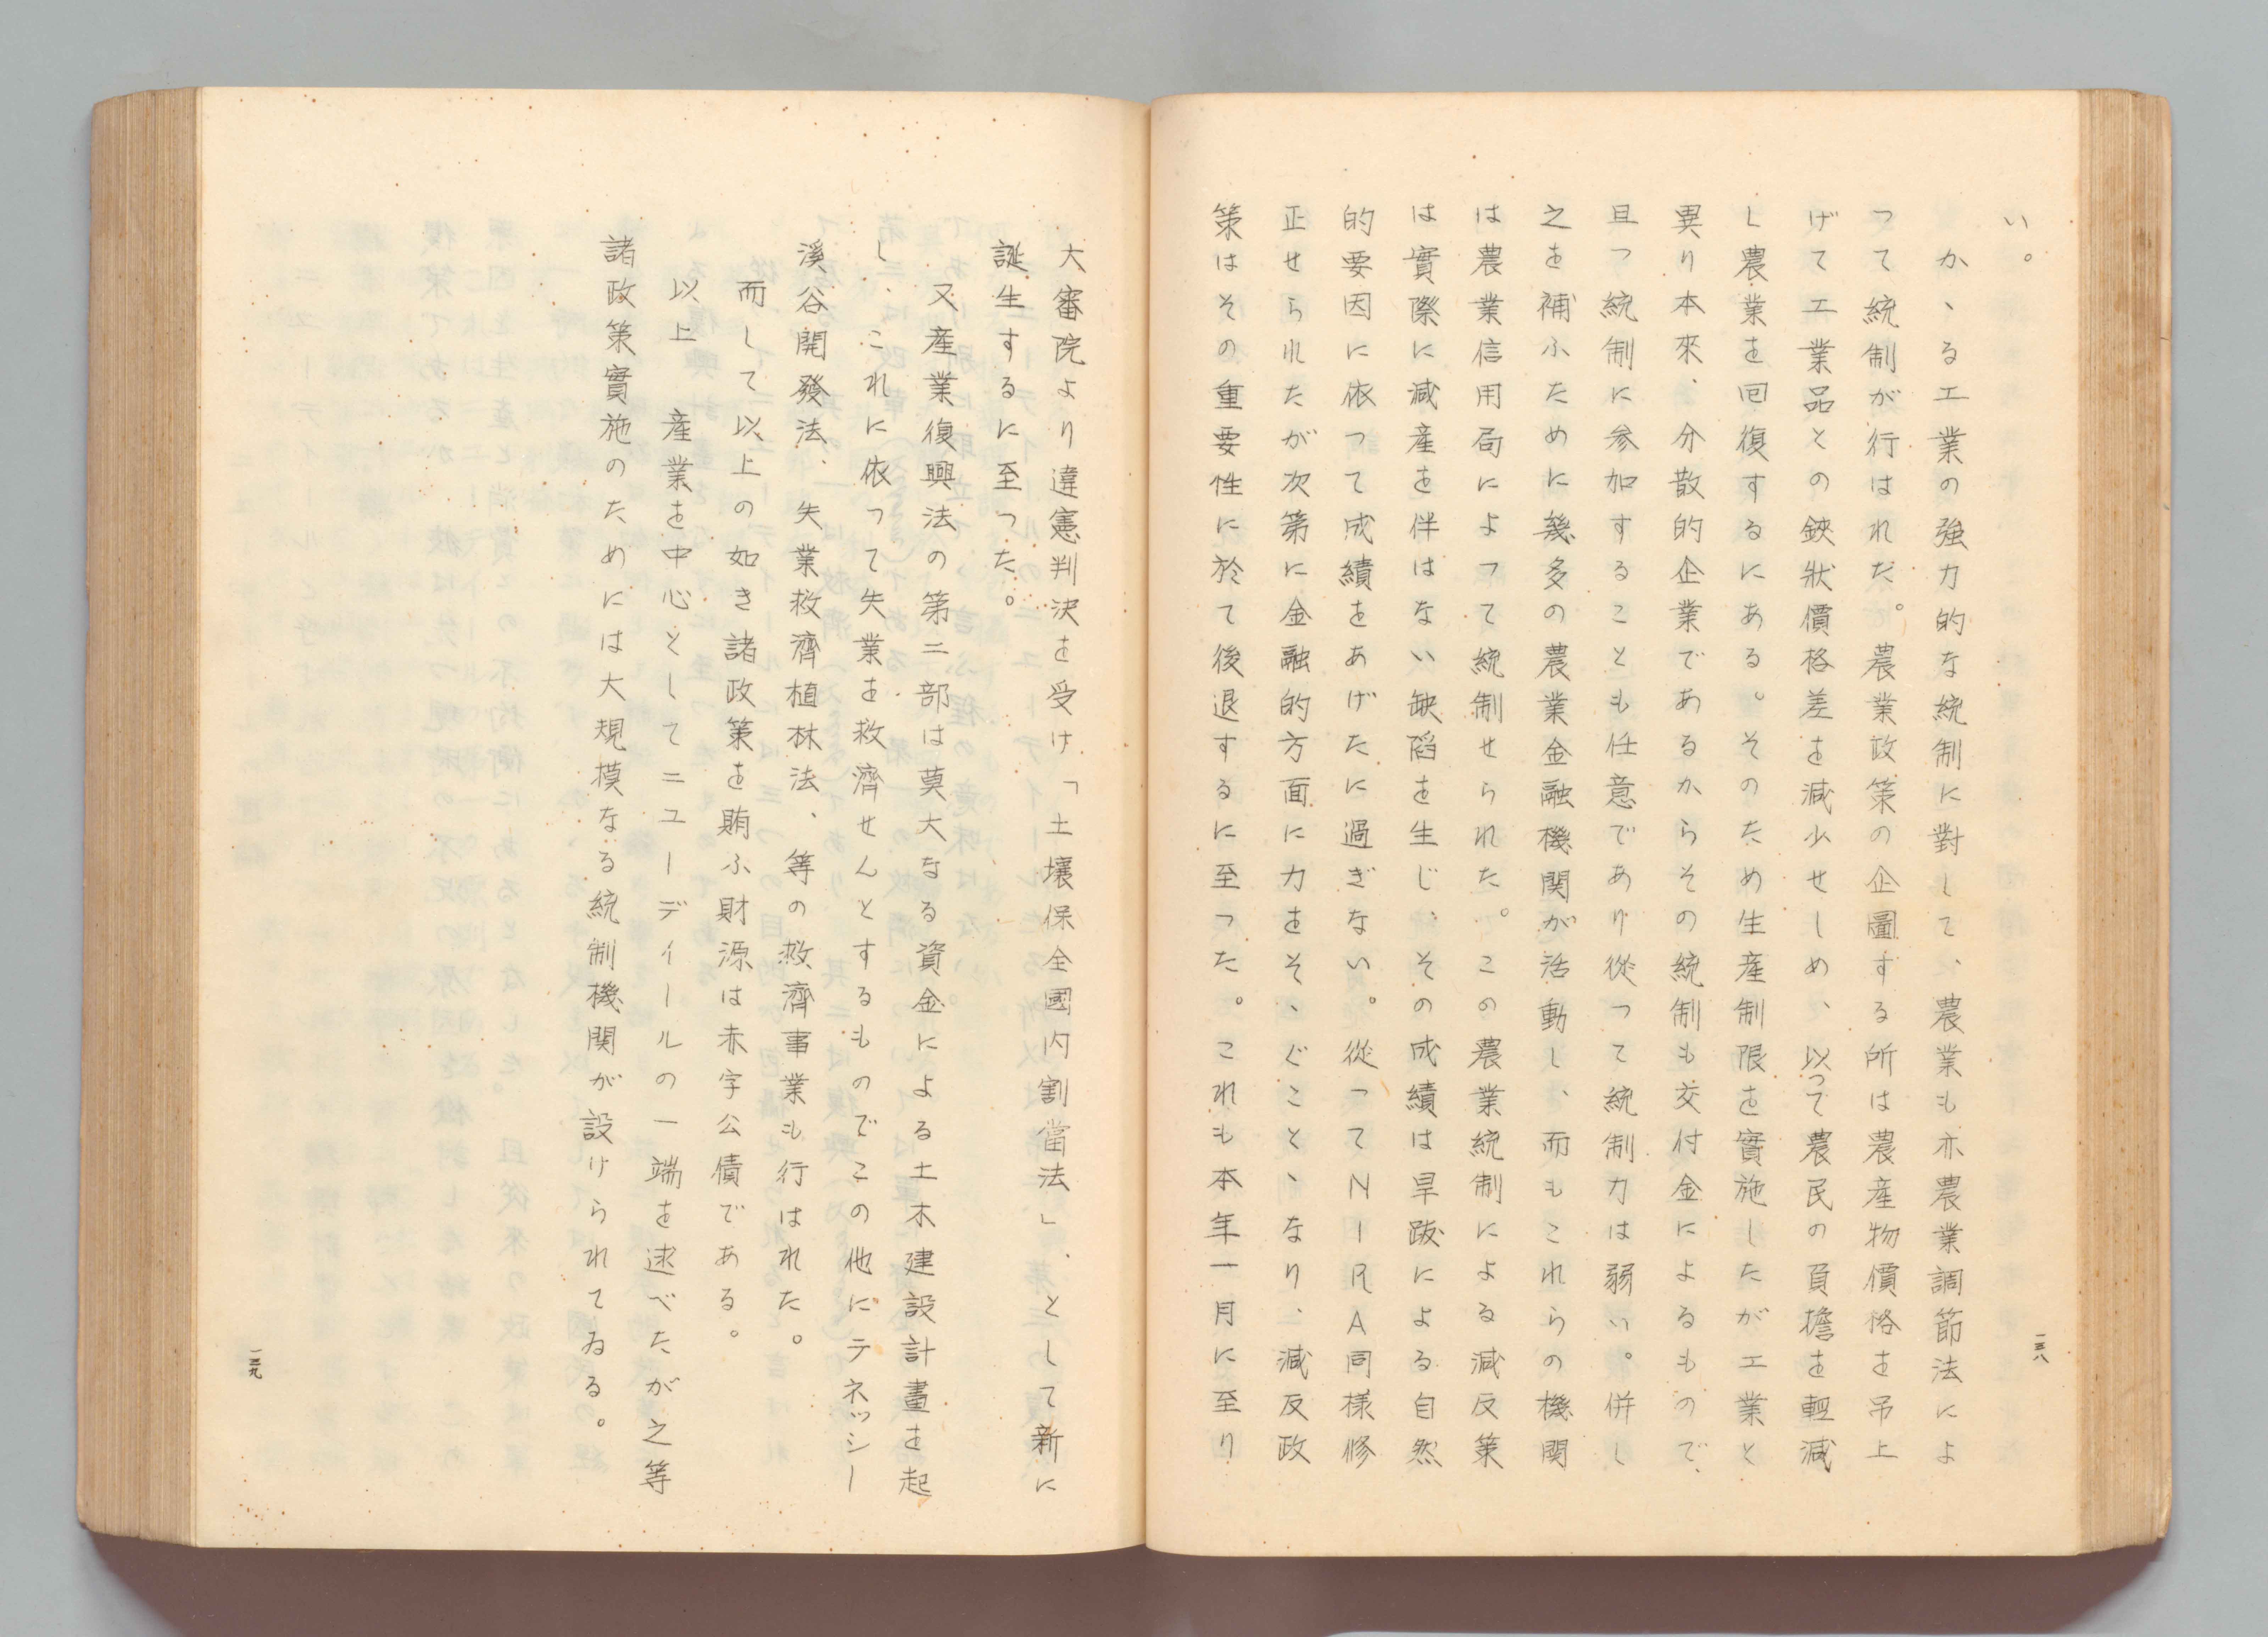 い。
かゝる工業の強力的な統制に對して、農業も亦農業調節法によ
つて統制が行はれた。農業政策の企圖する所は農產物價格を吊上
げて工業品との鋏狀價格差を減少せしめ、以つて農民の負擔を輕減
し農業を回復するにある。そのため生產制限を實施したが工業と
異り本來、分散的企業であるからその統制も交付金によるもので、
且つ統制に参加することも任意であり從つて統制力は弱い。併し
之を補ふために幾多の農業金融機関が活動し、而もこれらの機関
は農業信用局によつて統制せられた。この農業統制による減反策
は實際に減產を伴はない缺陷を生じ、その成績は旱跋による自然
的要因に依つて成績をあげたに過ぎない。從つてNIRA同樣修
正せられたが次第に金融的方面に力をそゝぐことゝなり、減反政
策はその重要性に於て後退するに至つた。これも本年一月に至り
一三八
大審院より違憲判決を受け「土壤保全國内割當法」、として新に
誕生するに至つた。
又產業復興法の第二部は莫大なる資金による土木建設計畫を起
し、これに依つて失業を救濟せんとするものでこの他にテネッシー
溪谷開發法、失業救濟植林法、等の救濟事業も行はれた。
而して以上の如き諸政策を賄ふ財源は赤字公債である。
以上 產業を中心としてニユーデイールの一端を逑べたが之等
諸政策實施のためには大規模なる統制機関が設けられてゐる。
一三九